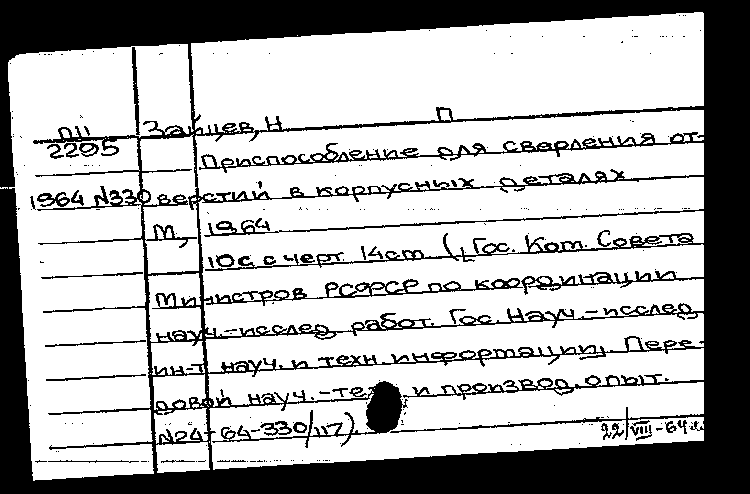 П11 Зайцев, Н П
2295 Приспособление для сверления от-
1964 N330 верстий в корпусных деталях.
М, 1964
10с с черт 14см ([Гос. Ком. Совета
Министров РСФСР по координации
науч.-исслед. работ. Гос. Науч.-исслед.
ин-т науч. и техн. информации]. Пере-
довой науч.-те и производ. опыт.
N24-64-330/117).
22/VIII-64